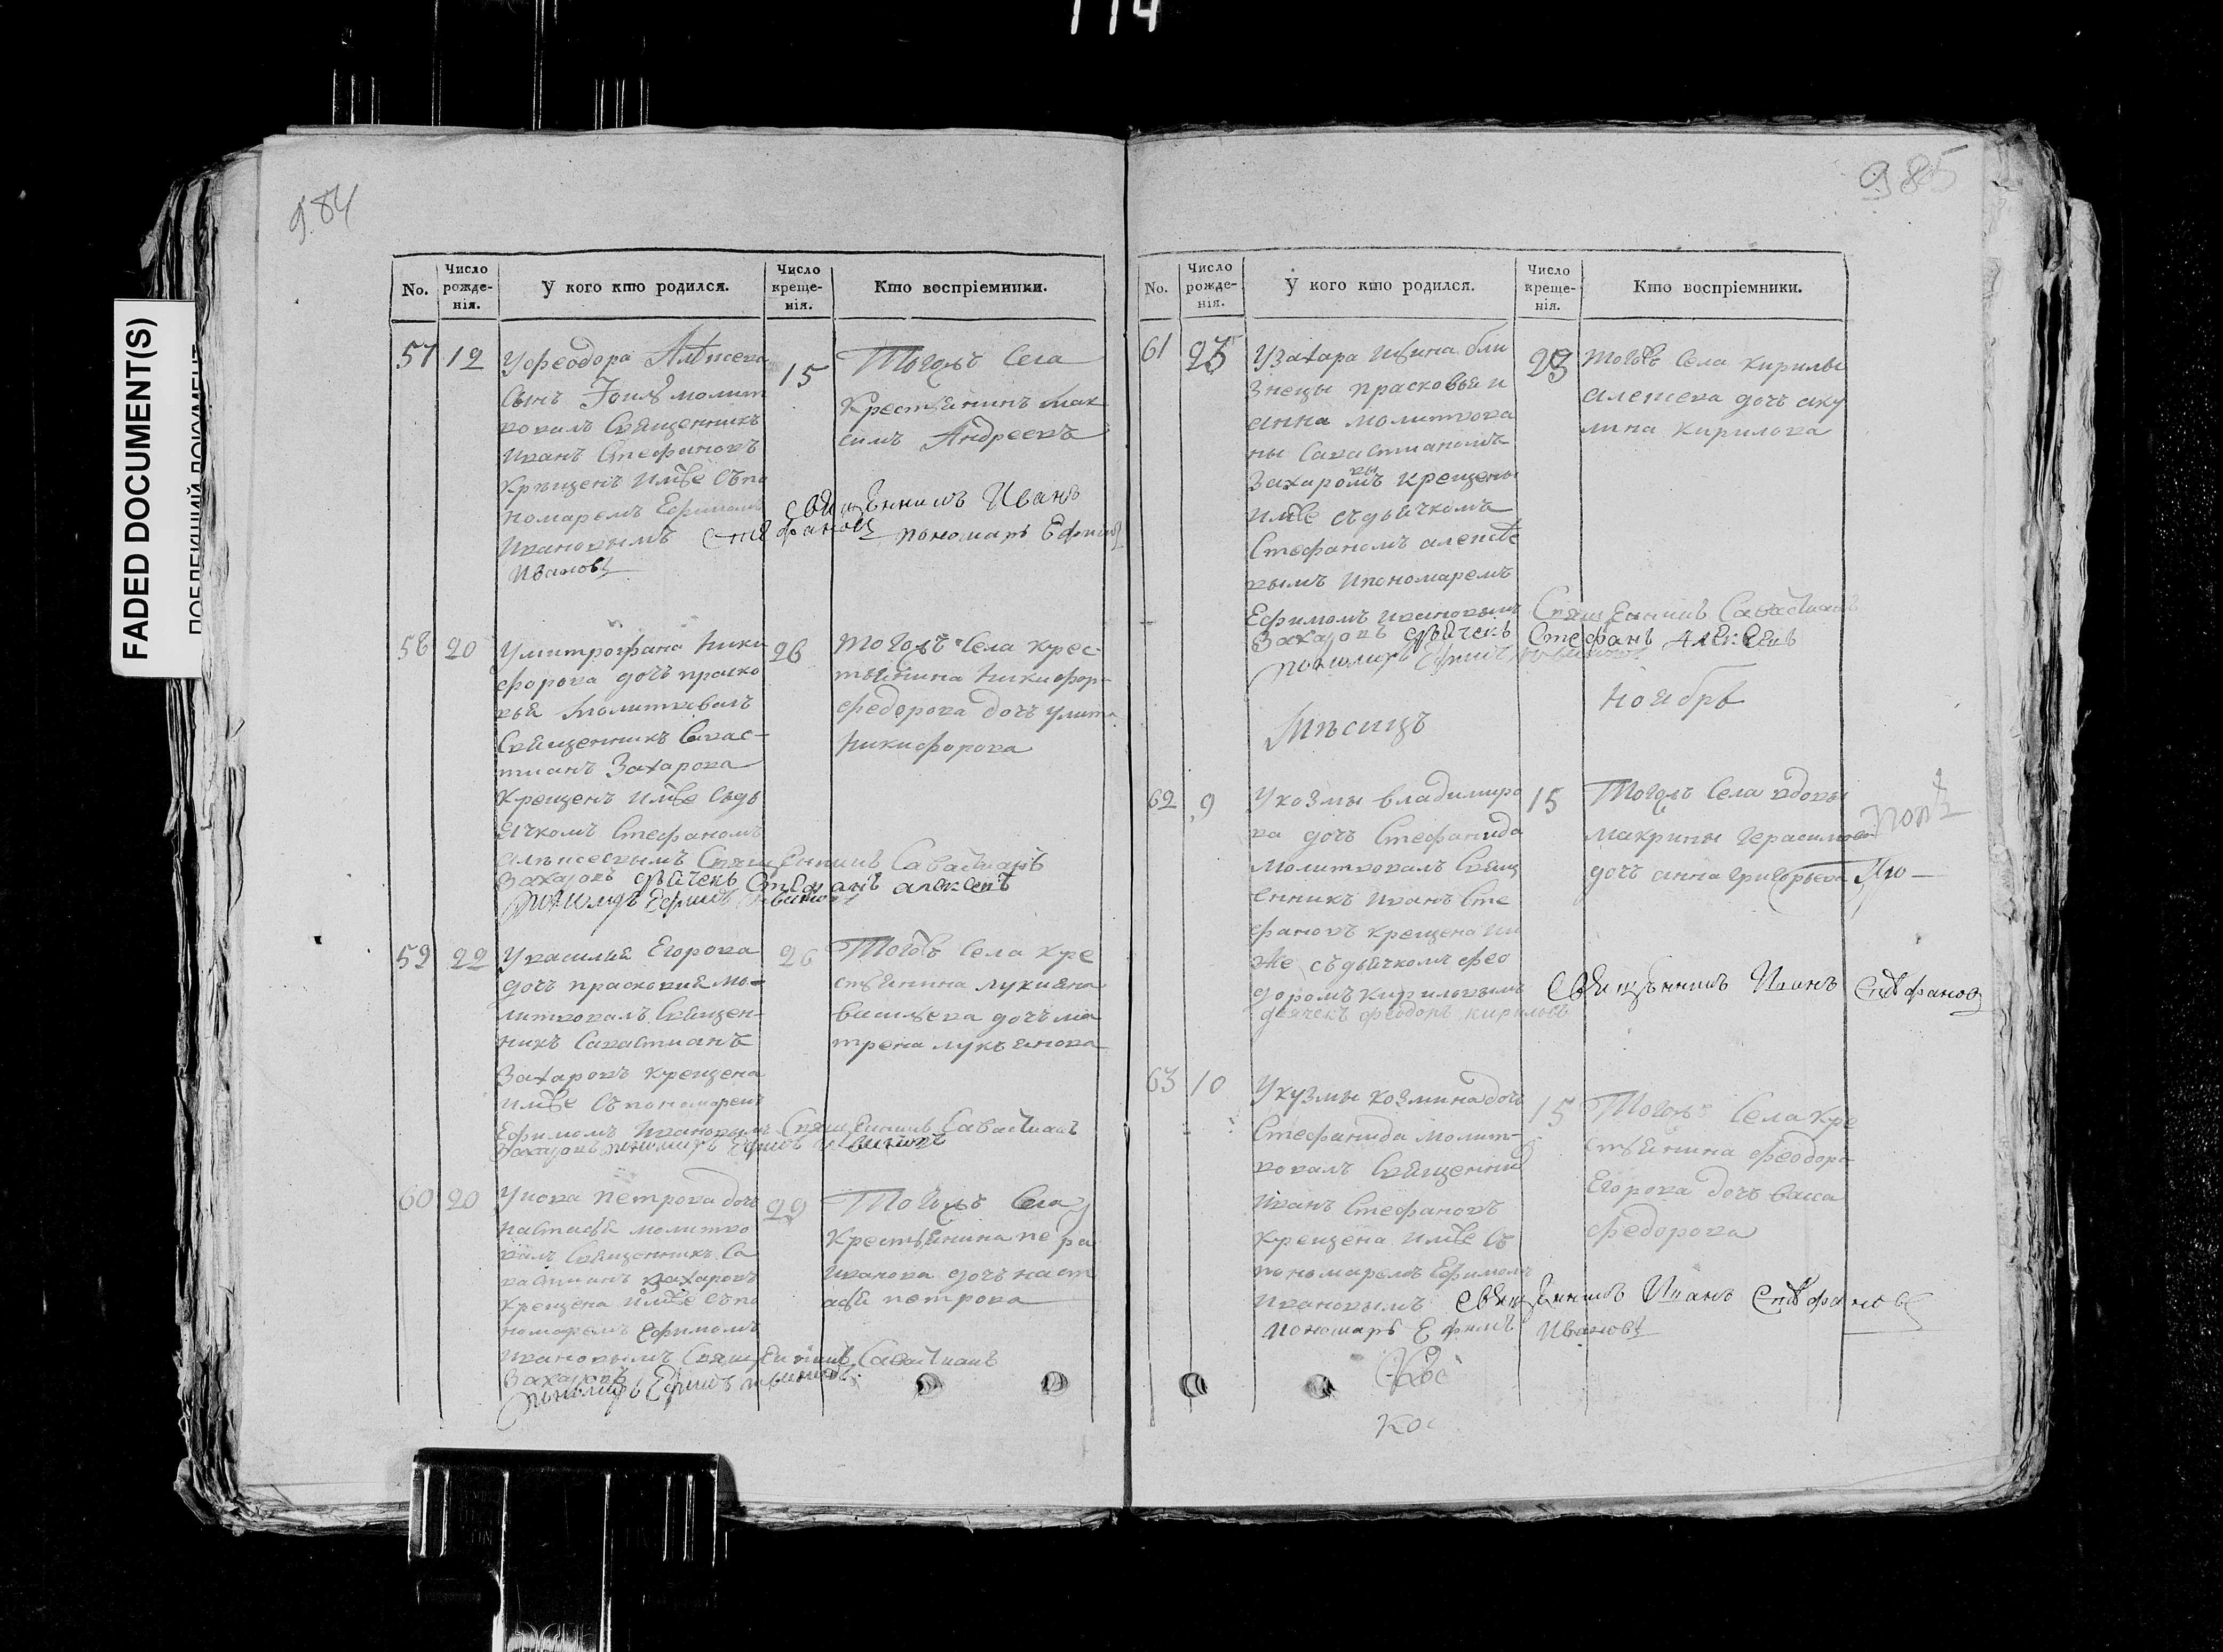 114
FADED DOCUMENT(S)
984
No.
Число рожде-нія.
У кого кто родился.
Число креще-нія.
Кто воспріемники.
57 12
У феодора Алѣксева
сынъ молит
вовалъ священникъ
иванъ Стефановъ
крещенъ имже съ по
номаремъ Ефимомъ
ивановымъ
15
Тогожъ Села
Крестьянинъ мак
симъ Андреевъ
священникъ Иванъ
стефановъ пономарь Ефимъ
Ивановъ
58 20
У митрофана ники
форова дочь праско
вья молитвовалъ
Священникъ савас-
тианъ Захаровъ
Крещенъ имже съ дь
ячкомъ Стефаномъ
алѣксевымъ
26
тогожъ Села крес-
тьянина никифора
федорова дочь улита
никифорова
Священникъ Савастианъ
Захаровъ дьячекъ Стефанъ алексевъ
пономарь Ефимъ Ивановъ
59 22
У василия Егорова
дочь прасковия мо-
литвовалъ Священ-
никъ Савастианъ
Захаровъ крещена
имже съ пономоремъ
Ефимомъ Ивановымъ
26
Тогожъ Села кре
стьянина лукияна
дочь ма
трена лукъянова
Священникъ Савастианъ
Захаровъ пономарь Ефимъ Ивановъ
60 20
У иова петрова дочь
настасья молитво
валъ Священникъ Са
вастианъ Захаровъ
крещена имже съ по
номаремъ Ефимомъ
ивановымъ
29
Тогожъ Села
Крестьянина
иванова дочь наст
асья петрова
Священникъ Савастианъ
Захаровъ
пономарь Ефимъ ивановъ
985
No.
Число рожде-нія.
У кого кто родился.
Число креще-нія.
Кто воспріемники.
61 25
У Захара бли
знецы прасковья и
анна молитвова
ны Савастианомъ
Захаровымъ крещены
имже съ дьячкомъ
Стефаномъ алексѣе
вымъ и пономаремъ
Ефимомъ ивановымъ
тогожъ Села кирилы
алексева дочь аку
лина кирилова
Священникъ Савастианъ
Захаровъ дьячекъ Стефанъ Алексевъ
пономарь Ефимъ Ивановъ
Мѣсицъ
ноябрь
62 9
У козмы владимиро
ва дочь Стефанида
молитвовалъ Свящ
енникъ иванъ Сте
фановъ крещена им
же съ дьячкомъ фео
доромъ кириловымъ
15
Тогожъ Села вдовы
макрины герасимова
дочь анна григорьева
священникъ Иванъ Стефановъ
дьячекъ феодоръ кириловъ
63 10
У кузмы козмина дочь
Стефанида молит-
вовалъ священникъ
иванъ Стефановъ
крещена имже съ
пономаремъ Ефимомъ
ивановымъ
15
Тогожъ Села кре
стьянина феодора
Егорова дочь васса
федорова
священникъ Иванъ Стефановъ
пономарь Ефимъ Ивановъ